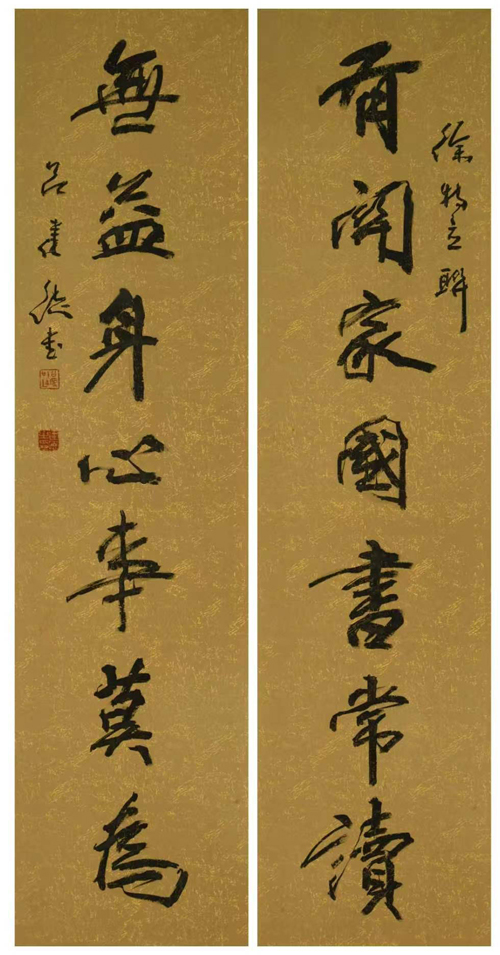 徐特立聯
有關家國書常讀
無益身心事莫為